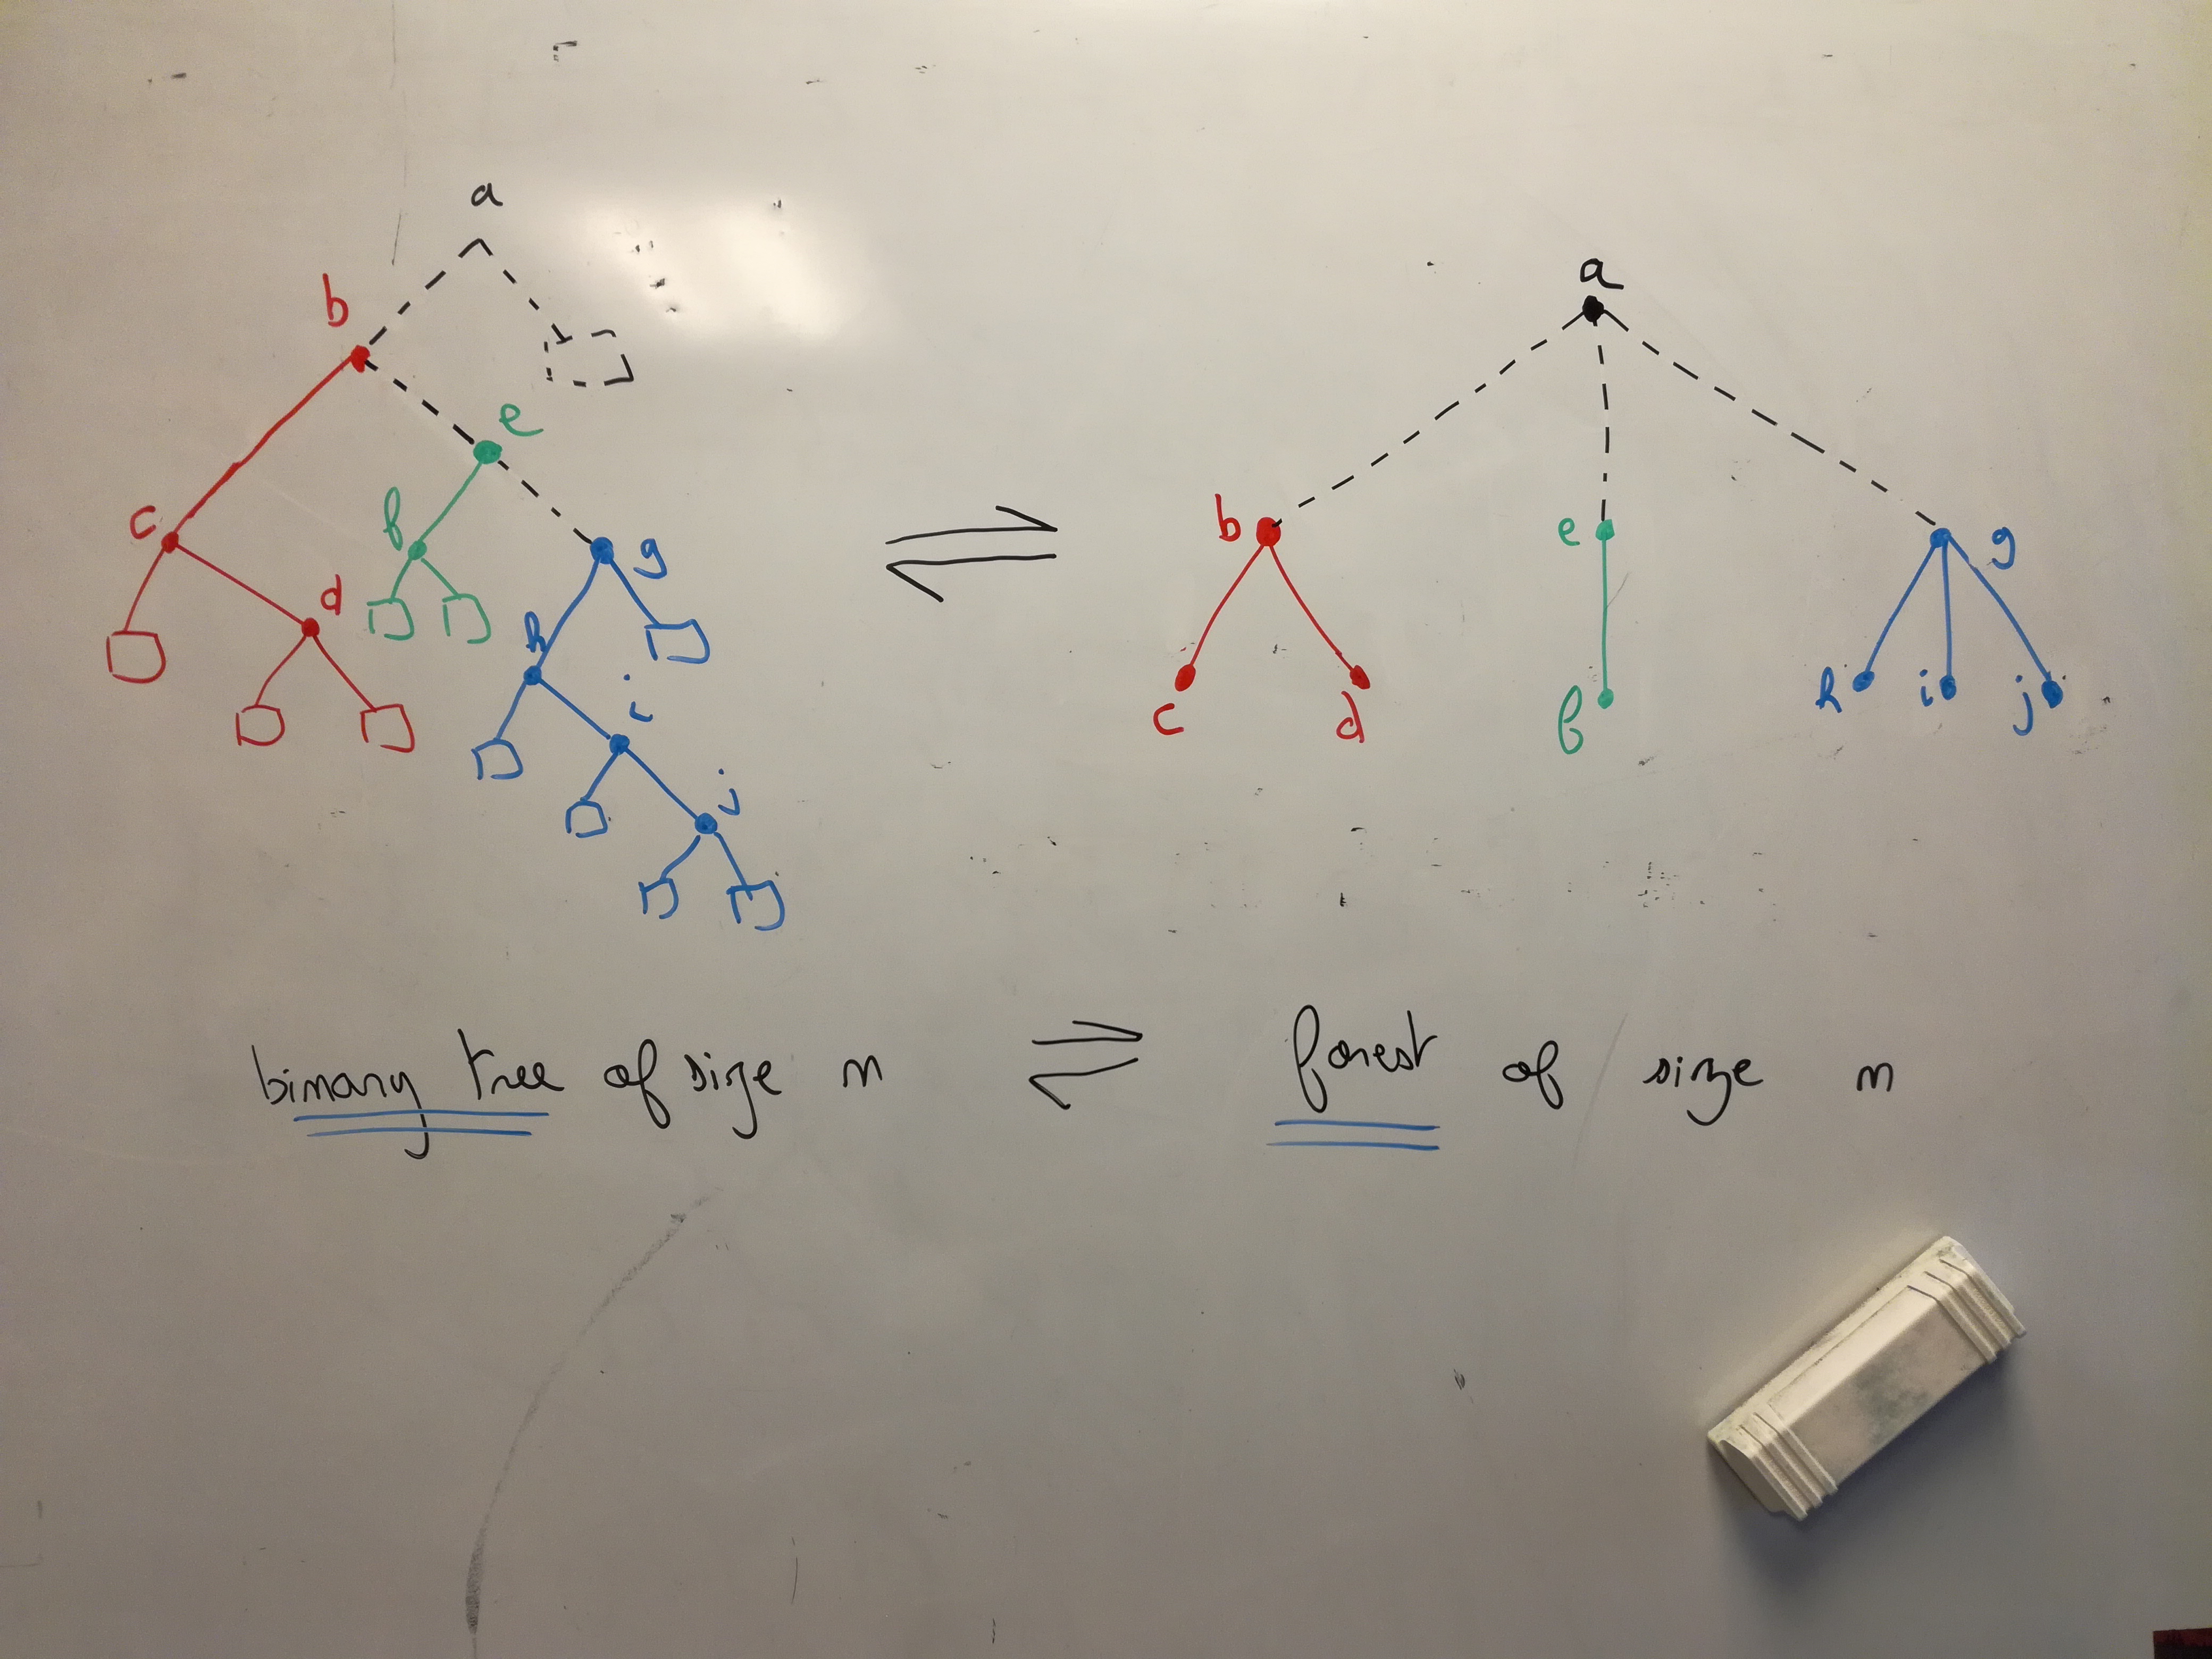 a
b
e
c
f
g
d
h
i
j
a
b
e
g
c
d
f
h
i
j
binary tree of size n ⇌ forest of size n